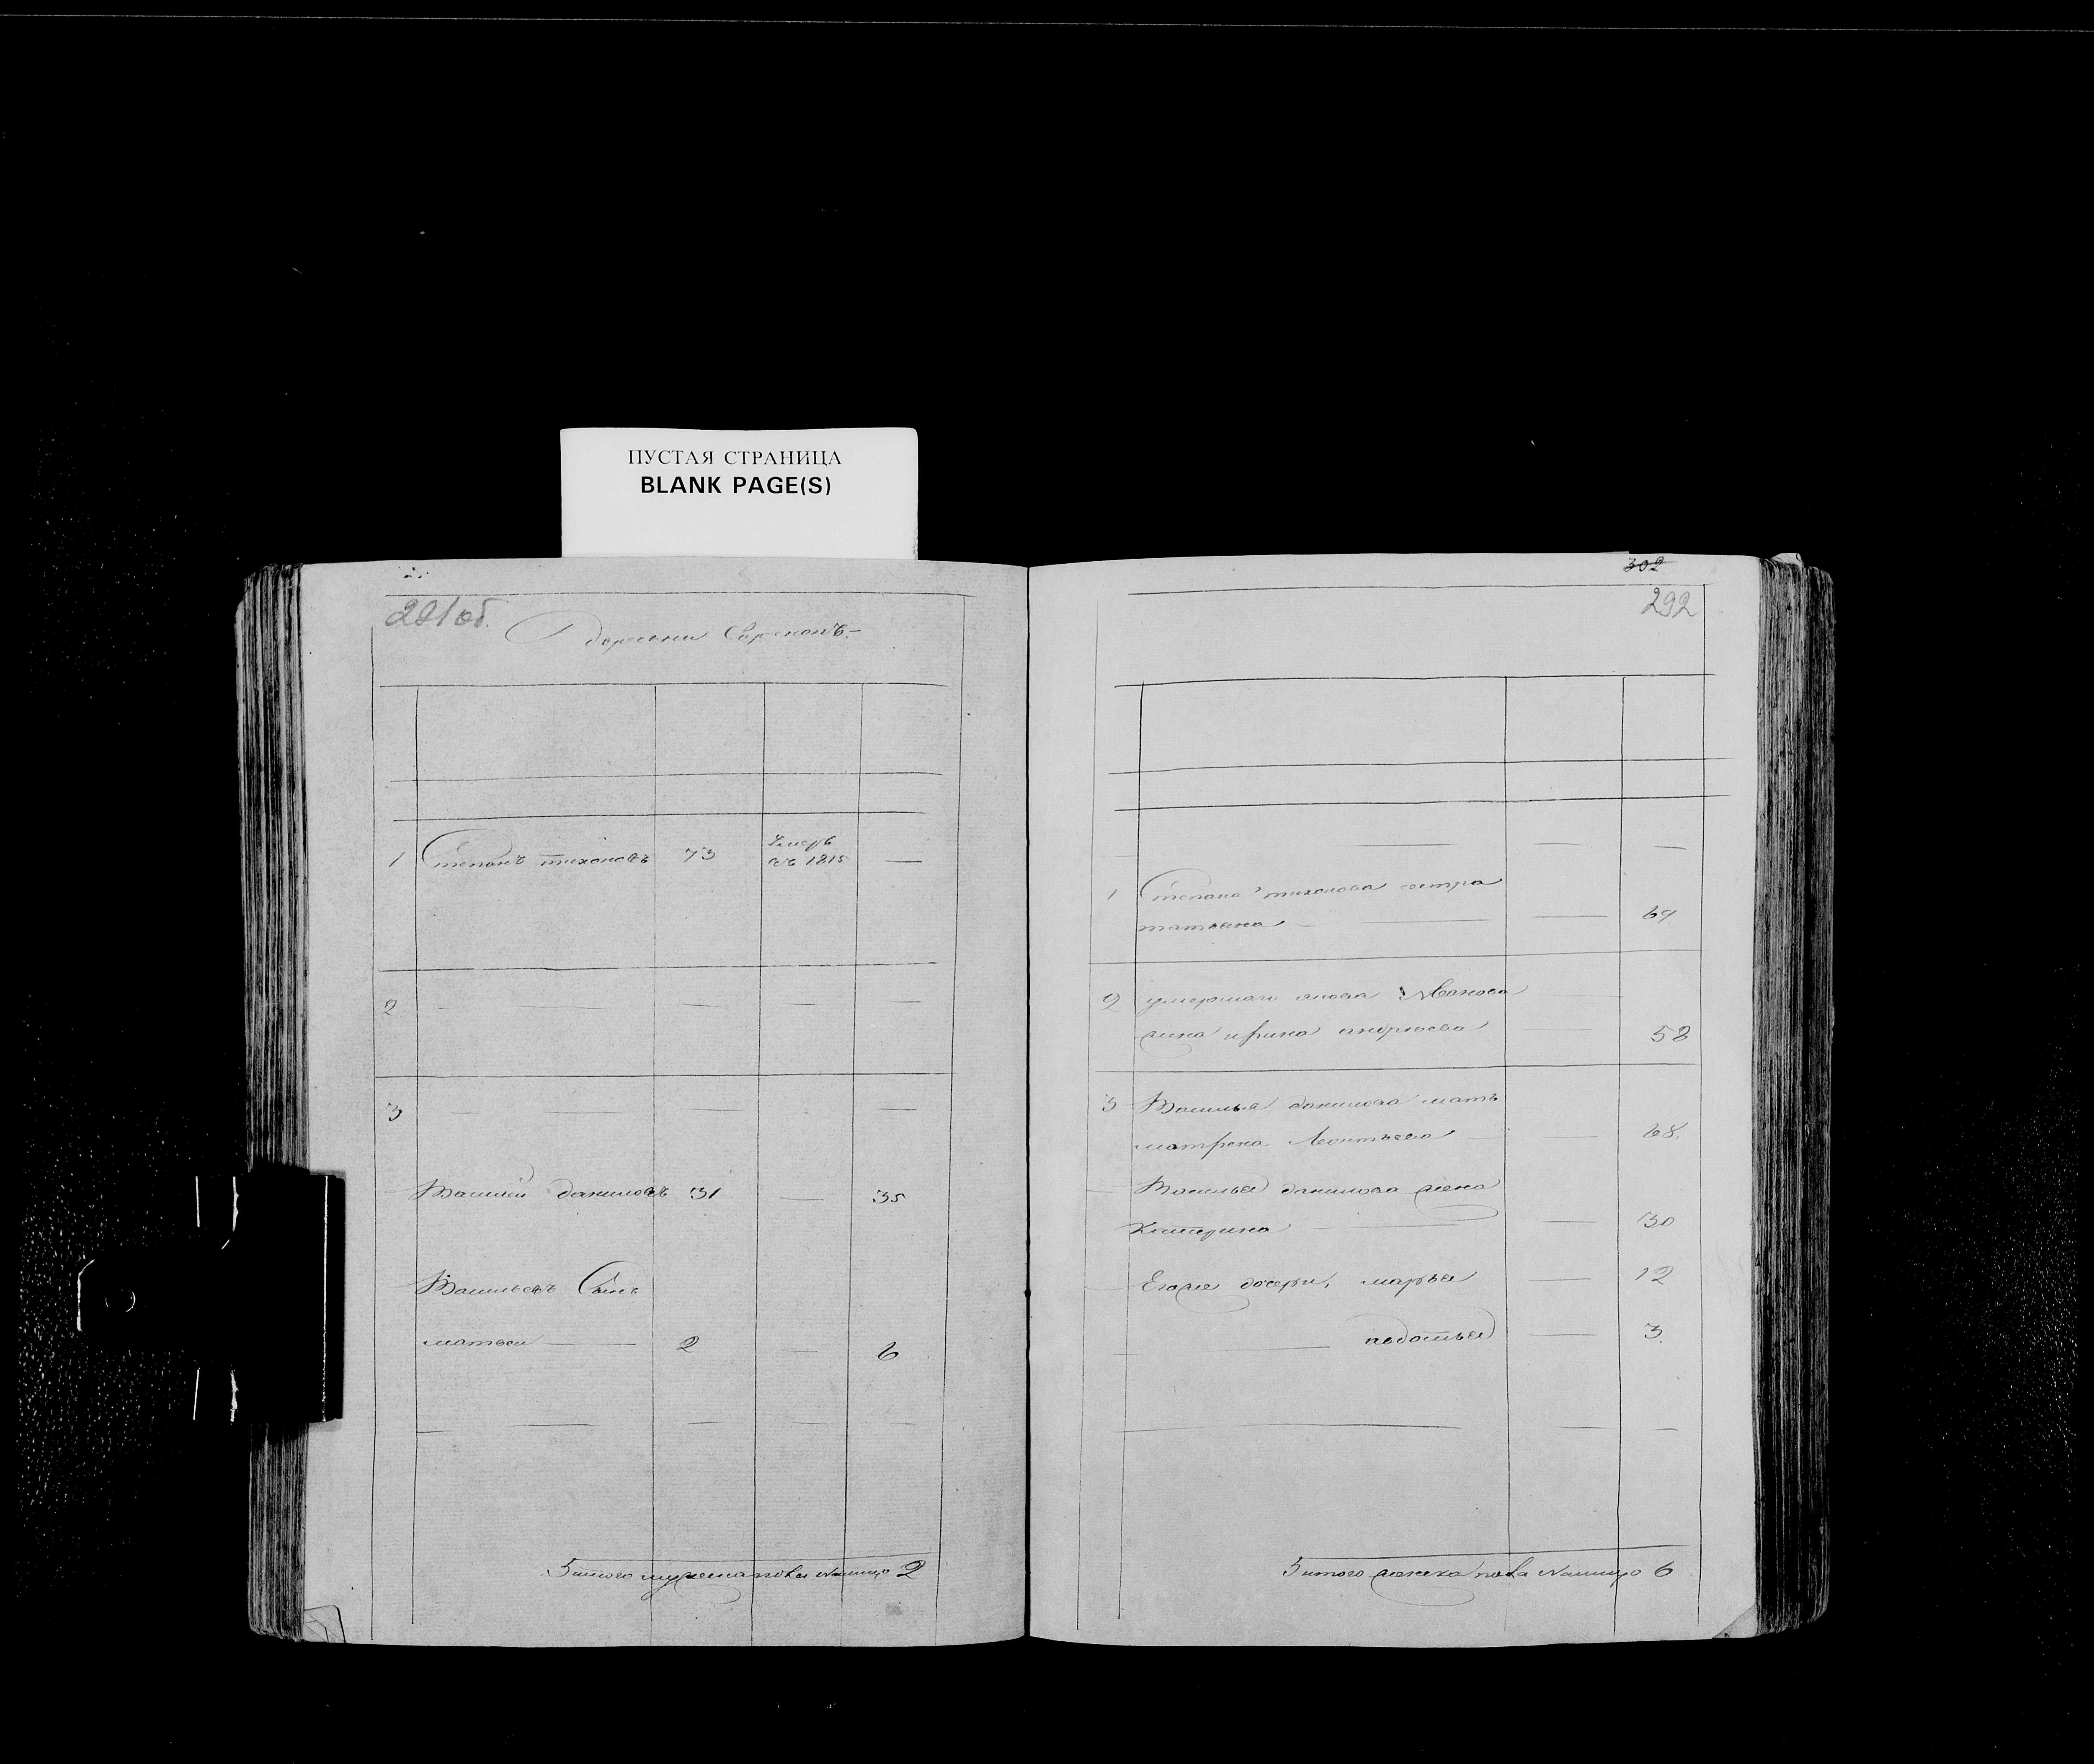 ПУСТАЯ СТРАНИЦА
BLANK PAGE(S)
291об.
деревни
1 Степанъ тихоновъ 73 Умеръ въ 1815 —
2 — — — —
3 — — —
Василий даниловъ 31 — 35
Васильевъ Сынъ
матвей — 2 — 6
Итого мужеска пола налицо 2
302
292
— — —
1 Степана тихонова сестра
татьяна — — 69
2 умершаго Иванова
жена ирина андреева — 58
3 Василья данилова мать
матрена Леонтьева — 68.
Василья данилова жена
Катерина — — 30
Егоже дочери, марья — 12
авдотья — 3.
Итого женска пола налицо 6